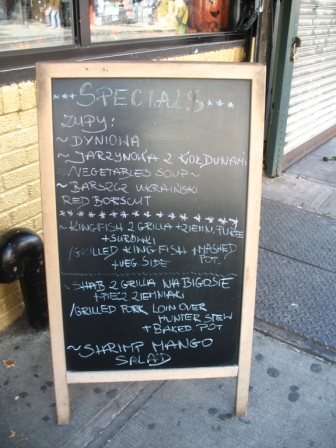 ***SPECIALS***
ZUPY:
~ DYNIOWA
~ JARZYNOWA Z KOŁDUNAMI
/VEGETABLES SOUP~
~ BARSZCZ UKRAIŃSKI
RED BORSCHT
~ KINGFISH Z GRILLA + ZIEMN. PUREE
+ SURÓWKI
/GRILLED KING FISH + MASHED POT. /
+ VEG SIDE
~ SHAB Z GRILLA NA BIGOSIE
+ PIECZ ZIEMNIAKI
/GRILLED PORK LOIN OVER
HUNTER STEW
+ BAKED POT
~ SHRIMP MANGO
SALAD